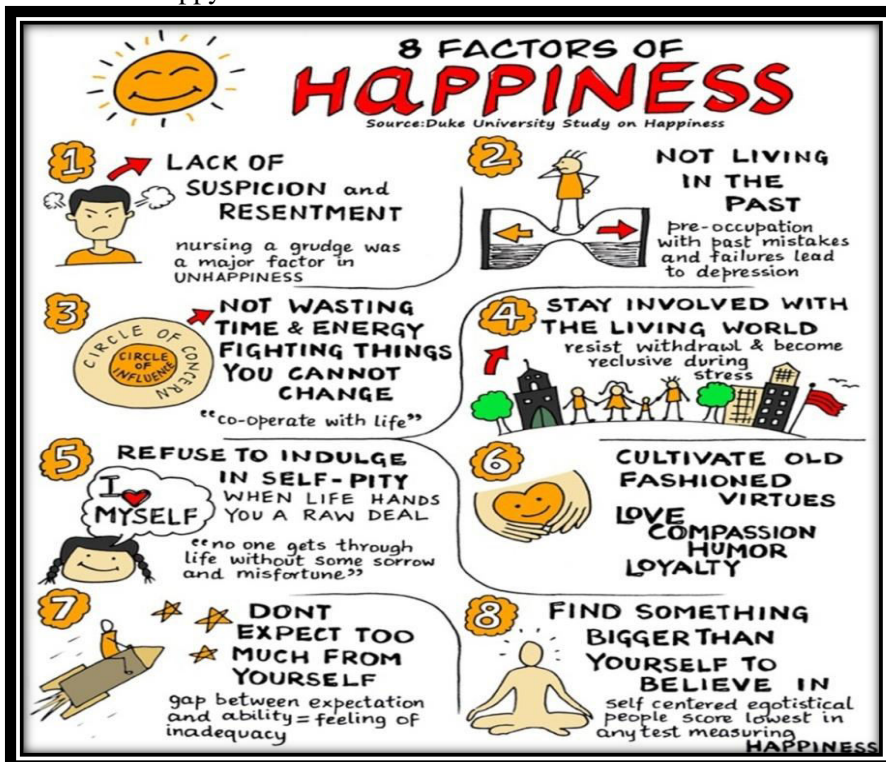 8 FACTORS OF
HAPPINESS
Source:Duke University Study on Happiness
1
LACK OF
SUSPICION and
RESENTMENT
nursing a grudge was
a major factor in
UNHAPPINESS
2
NOT LIVING
IN THE
PAST
pre-occupation
with past mistakes
and failures lead
to depression
3
NOT WASTING
TIME & ENERGY
FIGHTING THINGS
YOU CANNOT
CHANGE
"co-operate with life"
CIRCLE OF CONCERN
CIRCLE
OF
INFLUENCE
4
STAY INVOLVED WITH
THE LIVING WORLD
resist withdrawl & become
reclusive during
stress
5
REFUSE TO INDULGE
IN SELF-PITY
WHEN LIFE HANDS
YOU A RAW DEAL
"no one gets through
life without some sorrow
and misfortune"
I
MYSELF
6
CULTIVATE OLD
FASHIONED
VIRTUES
LOVE
COMPASSION
HUMOR
LOYALTY
7
DONT
EXPECT TOO
MUCH FROM
YOURSELF
gap between expectation
and ability = feeling of
inadequacy
8
FIND SOMETHING
BIGGER THAN
YOURSELF TO
BELIEVE IN
self centered egotistical
people score lowest in
any test measuring
HAPPINESS